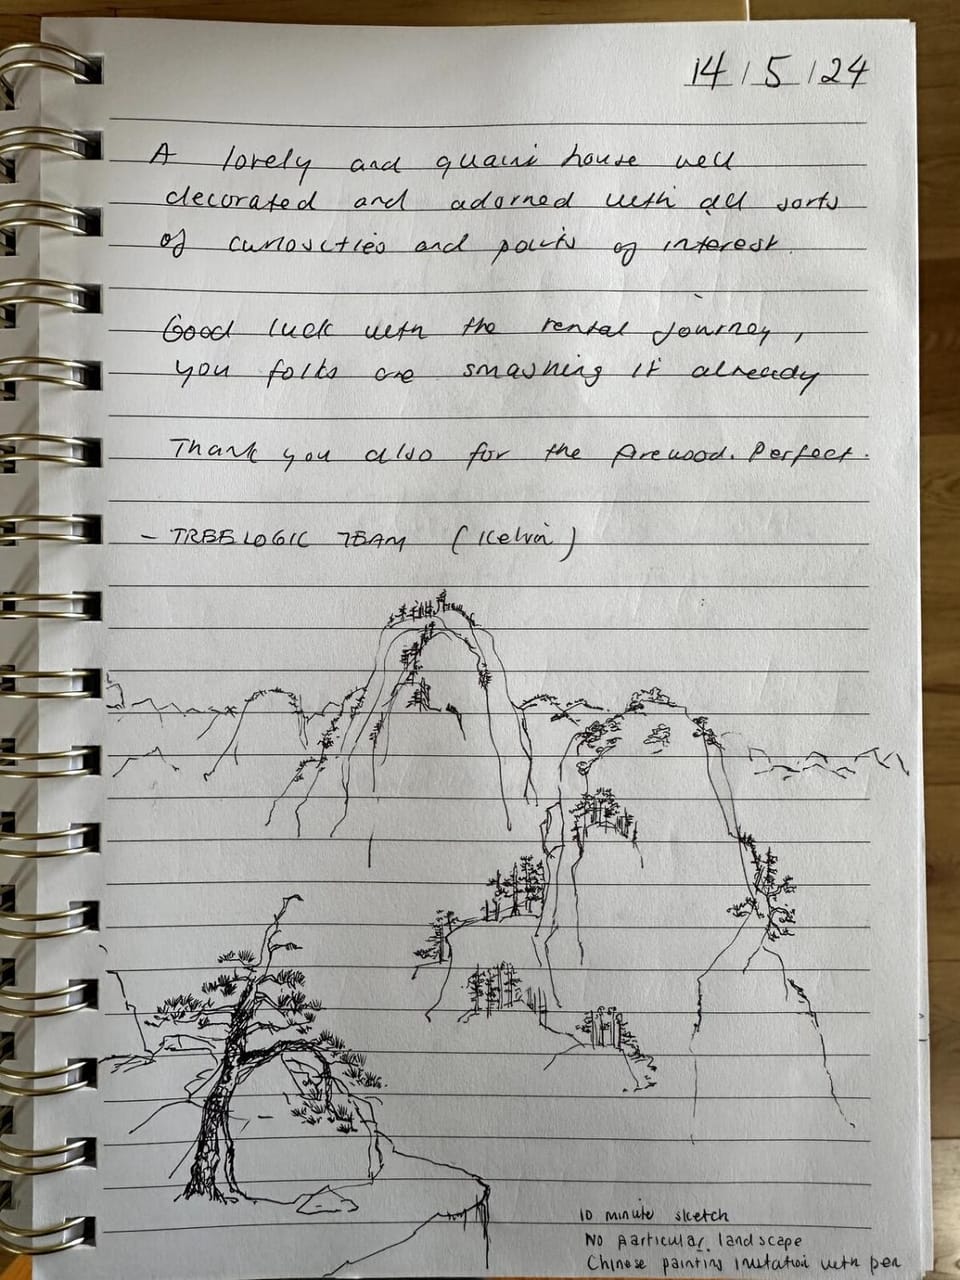 14/5/24
A lovely and quaint house well
decorated and adorned with all sorts
of curiosities and points of interest.
Good luck with the rental journey,
you folks are smashing it already
Thank you also for the firewood. Perfect.
- TREELOGIC TEAM (Kelvin)
10 minute sketch
No particular landscape
Chinese painting imitation with pen